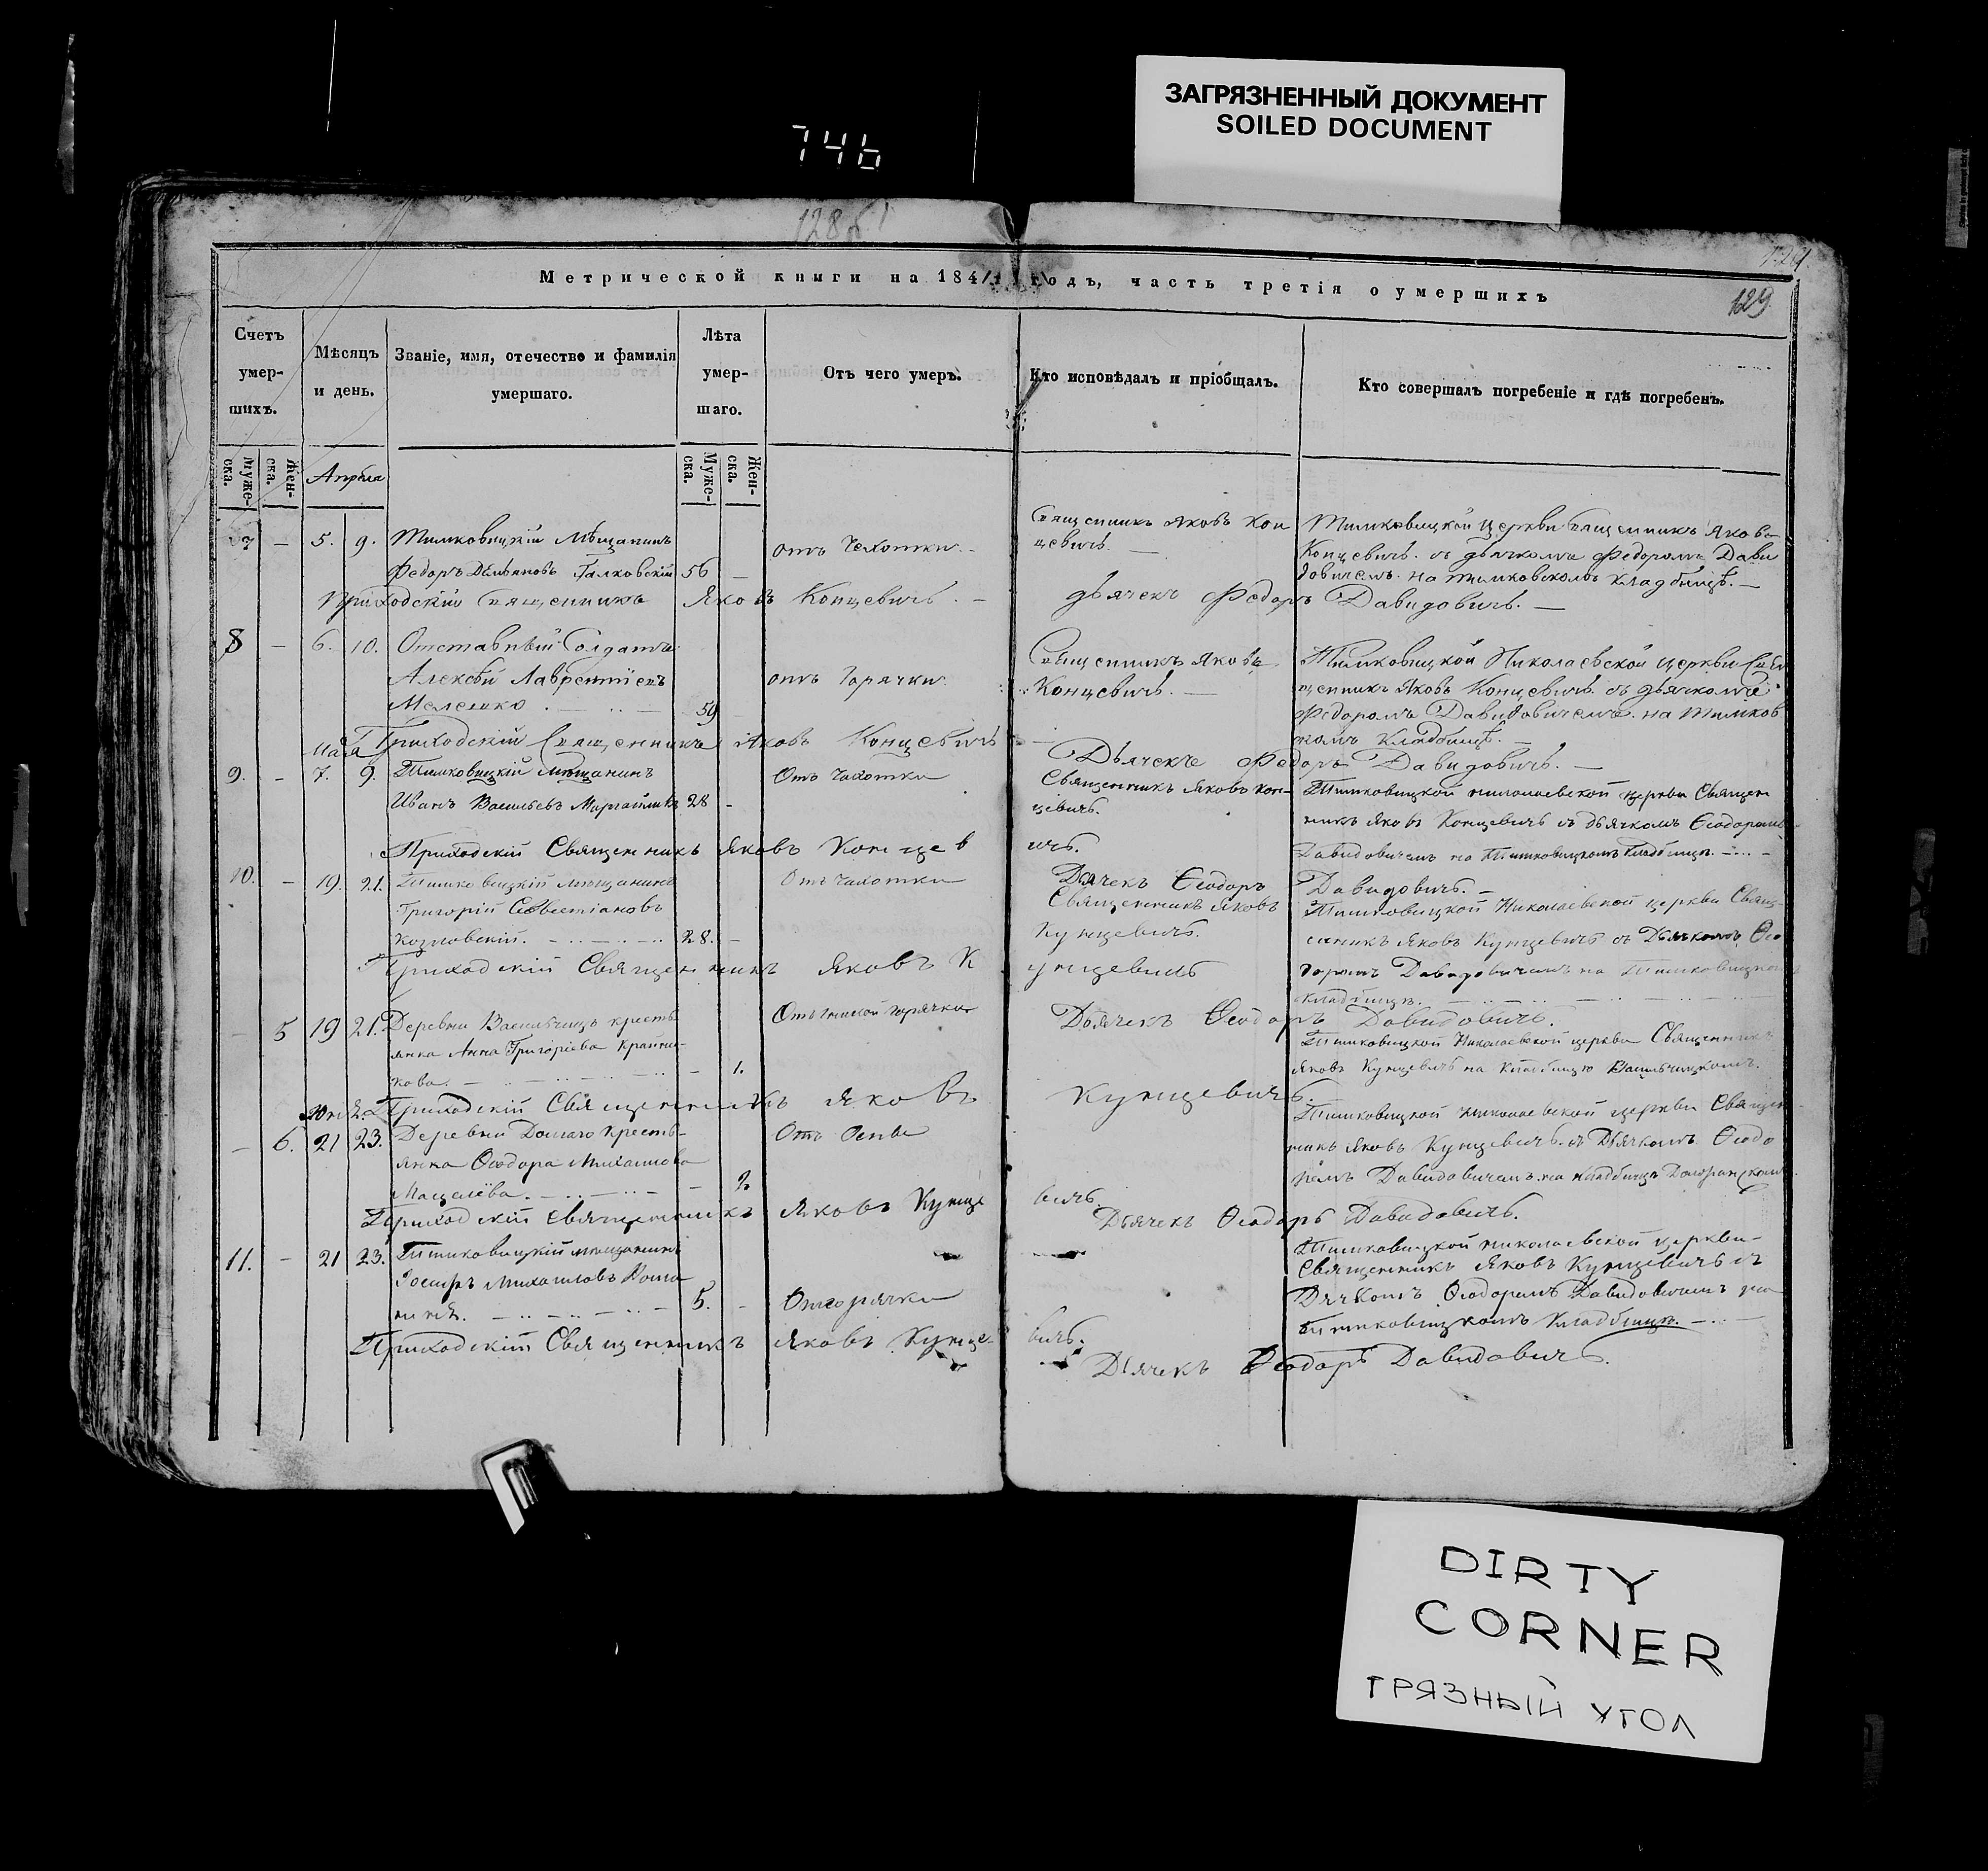 ЗАГРЯЗНЕННЫЙ ДОКУМЕНТ
SOILED DOCUMENT
746
128
129
Метрической книги на 184 годъ, часть третія о умершихъ
Счетъ умер-шихъ.
Мѣсяцъ и день.
Званіе, имя, отечество и фамилія умершаго.
Лѣта умер-шаго.
Отъ чего умеръ.
Кто исповѣдалъ и пріобщалъ.
Кто совершалъ погребеніе и гдѣ погребенъ.
Муже-ска.
Жен-ска.
Апрѣля
Муже-ска.
Жен-ска.
7 — 5. 9. Тимковицкій Мѣщанинъ
Федоръ Демьяновъ Галковскій 56 —
отъ Чахотки. —
Священникъ Яковъ Кон
цевичъ. —
Тимковицкой Церкви Священникъ Яковъ
Концевичъ. съ дьячкомъ Федоромъ Дави
довичемъ. на тимковскомъ кладбищѣ. —
Приходскій Священникъ Яковъ Концевичъ. — дьячекъ Федоръ Давидовичъ. —
8 — 6. 10. Отставный Солдатъ
Алексѣй Лаврентіевъ
Мелешко . — .. — 59
отъ Горячки.
Священникъ Яковъ
Концевичъ. —
Тимковицкой Николаевской Церкви Свя
щенникъ Яковъ Концевичъ съ дьячкомъ
Федоромъ Давидовичемъ. на тимков
комъ кладбищѣ. —
Приходскій Священникъ Яковъ Концевичъ Дьячекъ Федоръ Давидовичъ. —
Мая
9. — 7. 9. Тимковицкій мѣщанинъ
Иванъ Васильевъ 28 —
Отъ чахотки
Священникъ Яковъ Кон-
цевичъ.
Тимковицкой николаевской церкви Священ
никъ Яковъ Концевичъ съ дьячкомъ Ѳеодоромъ
Давидовичемъ на Тимковицкомъ Кладбищѣ. — .. —
Приходскій Священникъ Яковъ Концевичъ. Дячекъ Ѳеодоръ Давидовичъ. —
10. — 19. 21. Тимковицкій мѣщанинъ
Григорій Севестіановъ
Козловскій. — .. — .. — 28. —
Отъ чахотки
Священникъ Яковъ
Кунцевичъ.
Тимковицкой Николаевской церкви Свящ-
енникъ Яковъ Кунцевичъ съ Дьячкомъ Ѳео
доромъ Давидовичемъ на Тимковицкомъ
кладбищѣ. — .. — .. — .. —
Приходскій Священникъ Яковъ Кунцевичъ Дьячекъ Ѳеодоръ Давидовичъ.
— 5 19 21. Деревни Васильчицъ кресть
янка Анна Григоріева Крайни-
кова. — .. — .. — .. — 1.
горячки
Тимковицкой Николаевской церкви Священникъ
Яковъ Кунцевичъ на Кладбищѣ Васильчицкомъ.
Приходскій Священникъ Яковъ Кунцевичъ.
— 6. 21 23. Деревни кресть-
янка Ѳеодора Михаилова
— .. — .. — 2
Отъ Оспы
Тимковицкой николаевской церкви Священ-
никъ Яковъ Кунцевичъ. съ Дьячкомъ Ѳеодо
ромъ Давидовичемъ. на Кладбищѣ
Приходскій Священникъ Яковъ Кунцевичъ Дьячекъ Ѳеодоръ Давидовичъ.
11. — 21 23. Тимковицкій мѣщанинъ
Іосифъ Михаиловъ
— .. — .. — 5. — От горячки
Тимковицкой николаевской церкви-
Священникъ Яковъ Кунцевичъ съ
Дячкомъ Ѳеодоромъ Давидовичемъ на
тимковицкомъ Кладбищѣ. — .. —
Приходскій Священникъ Яковъ Кунцевичъ. Дьячекъ Ѳеодоръ Давидовичъ.
DIRTY
CORNER
ГРЯЗНЫЙ УГОЛ